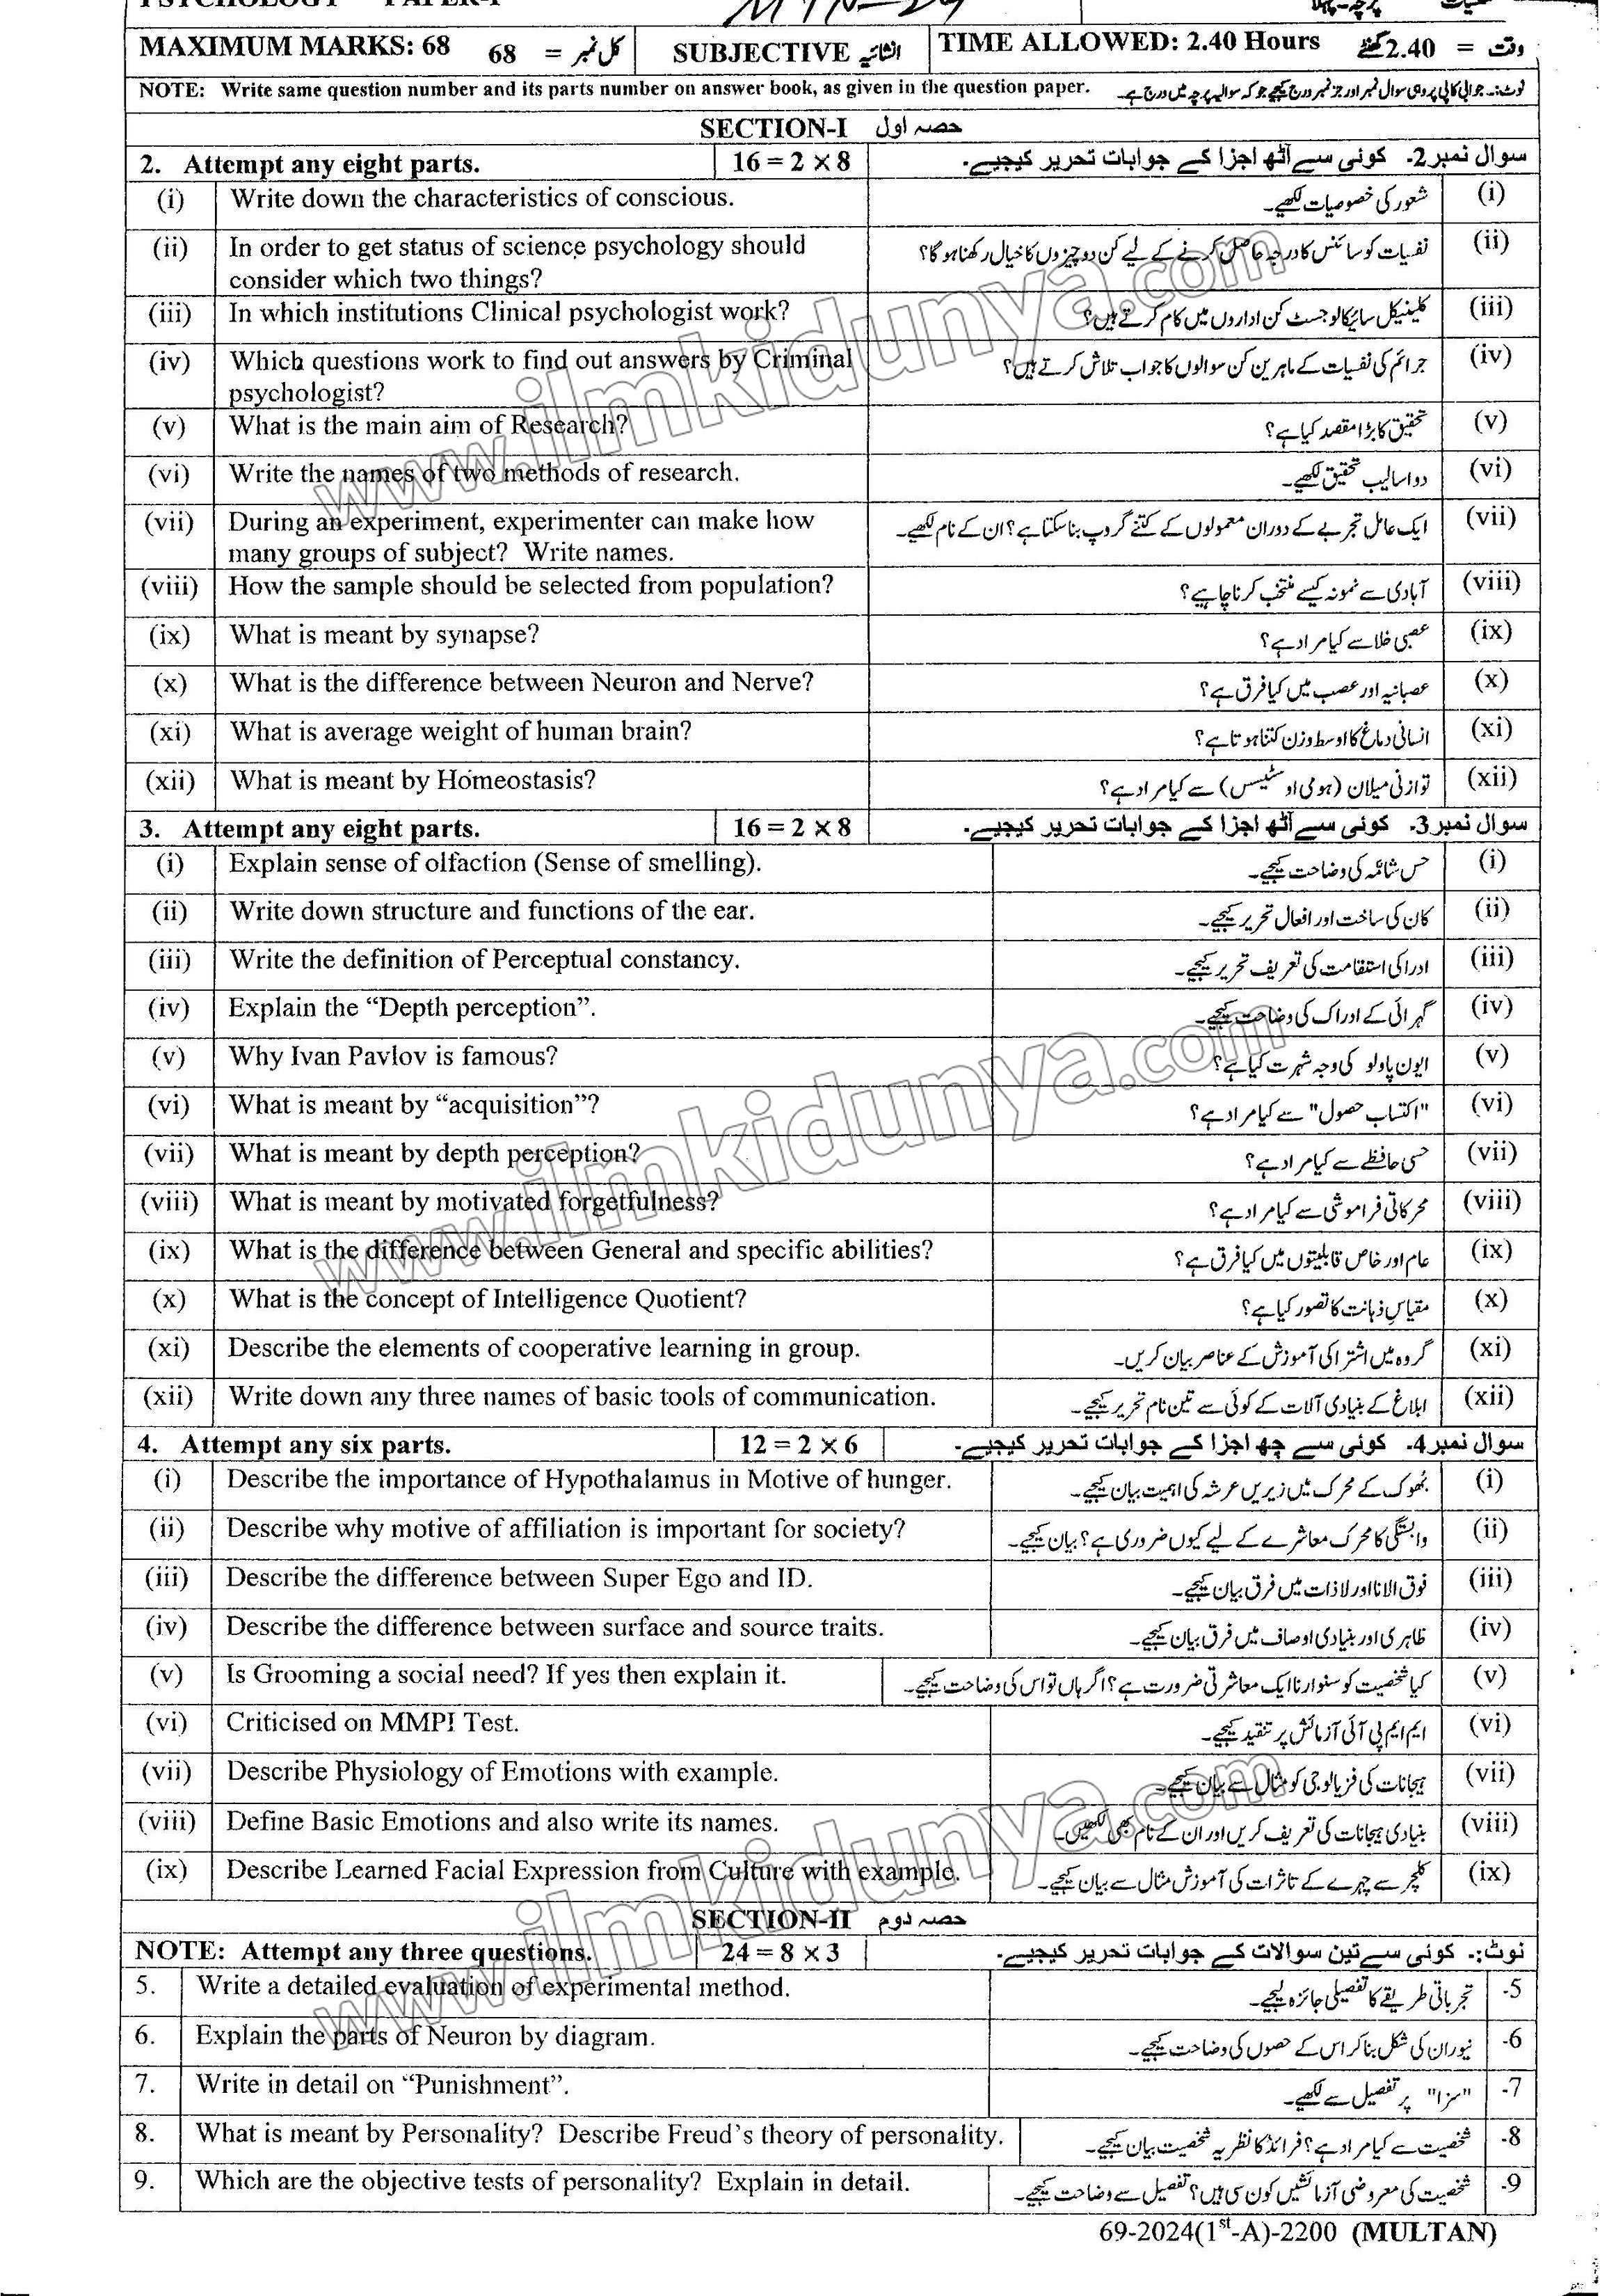 PSYCHOLOGY PAPER-I
MAXIMUM MARKS: 68 68 = کل نمبر SUBJECTIVE انشائیہ TIME ALLOWED: 2.40 Hours وقت = 2.40 گھنٹے
NOTE: Write same question number and its parts number on answer book, as given in the question paper. نوٹ:۔ جوابی کاپی پر وہی سوال نمبر اور جز نمبر درج کیجیے جو کہ سوالیہ پرچہ میں درج ہے۔
SECTION-I حصہ اول
2. Attempt any eight parts. 16 = 2 × 8 سوال نمبر 2۔ کوئی سے آٹھ اجزا کے جوابات تحریر کیجیے۔
(i) Write down the characteristics of conscious. شعور کی خصوصیات لکھیے۔ (i)
(ii) In order to get status of science psychology should نفسیات کو سائنس کا درجہ حاصل کرنے کے لیے کن دو چیزوں کا خیال رکھنا ہو گا؟ (ii)
consider which two things?
(iii) In which institutions Clinical psychologist work? کلینیکل سائیکالوجسٹ کن اداروں میں کام کرتے ہیں؟ (iii)
(iv) Which questions work to find out answers by Criminal جرائم کی نفسیات کے ماہرین کن سوالوں کا جواب تلاش کرتے ہیں؟ (iv)
psychologist?
(v) What is the main aim of Research? تحقیق کا بڑا مقصد کیا ہے؟ (v)
(vi) Write the names of two methods of research. دو اسالیب تحقیق لکھیے۔ (vi)
(vii) During an experiment, experimenter can make how ایک عامل تجربے کے دوران معمولوں کے کتنے گروپ بنا سکتا ہے؟ ان کے نام لکھیے۔ (vii)
many groups of subject? Write names.
(viii) How the sample should be selected from population? آبادی سے نمونہ کیسے منتخب کرنا چاہیے؟ (viii)
(ix) What is meant by synapse? عصبی خلا سے کیا مراد ہے؟ (ix)
(x) What is the difference between Neuron and Nerve? عصبانیہ اور عصب میں کیا فرق ہے؟ (x)
(xi) What is average weight of human brain? انسانی دماغ کا اوسط وزن کتنا ہوتا ہے؟ (xi)
(xii) What is meant by Homeostasis? توازنی میلان (ہومی اوسٹیسس) سے کیا مراد ہے؟ (xii)
3. Attempt any eight parts. 16 = 2 × 8 سوال نمبر 3۔ کوئی سے آٹھ اجزا کے جوابات تحریر کیجیے۔
(i) Explain sense of olfaction (Sense of smelling). حس شامّہ کی وضاحت کیجیے۔ (i)
(ii) Write down structure and functions of the ear. کان کی ساخت اور افعال تحریر کیجیے۔ (ii)
(iii) Write the definition of Perceptual constancy. ادراکی استقامت کی تعریف تحریر کیجیے۔ (iii)
(iv) Explain the “Depth perception”. گہرائی کے ادراک کی وضاحت کیجیے۔ (iv)
(v) Why Ivan Pavlov is famous? ایون پاولو کی وجہ شہرت کیا ہے؟ (v)
(vi) What is meant by “acquisition”? "اکتساب حصول" سے کیا مراد ہے؟ (vi)
(vii) What is meant by depth perception? حسی حافظے سے کیا مراد ہے؟ (vii)
(viii) What is meant by motivated forgetfulness? محرکاتی فراموشی سے کیا مراد ہے؟ (viii)
(ix) What is the difference between General and specific abilities? عام اور خاص قابلیتوں میں کیا فرق ہے؟ (ix)
(x) What is the concept of Intelligence Quotient? مقیاس ذہانت کا تصور کیا ہے؟ (x)
(xi) Describe the elements of cooperative learning in group. گروہ میں اشتراکی آموزش کے عناصر بیان کریں۔ (xi)
(xii) Write down any three names of basic tools of communication. ابلاغ کے بنیادی آلات کے کوئی سے تین نام تحریر کیجیے۔ (xii)
4. Attempt any six parts. 12 = 2 × 6 سوال نمبر 4۔ کوئی سے چھ اجزا کے جوابات تحریر کیجیے۔
(i) Describe the importance of Hypothalamus in Motive of hunger. بھوک کے محرک میں زیریں عرشہ کی اہمیت بیان کیجیے۔ (i)
(ii) Describe why motive of affiliation is important for society? وابستگی کا محرک معاشرے کے لیے کیوں ضروری ہے؟ بیان کیجیے۔ (ii)
(iii) Describe the difference between Super Ego and ID. فوق الانا اور لاذات میں فرق بیان کیجیے۔ (iii)
(iv) Describe the difference between surface and source traits. ظاہری اور بنیادی اوصاف میں فرق بیان کیجیے۔ (iv)
(v) Is Grooming a social need? If yes then explain it. کیا شخصیت کو سنوارنا ایک معاشرتی ضرورت ہے؟ اگر ہاں تو اس کی وضاحت کیجیے۔ (v)
(vi) Criticised on MMPI Test. ایم ایم پی آئی آزمائش پر تنقید کیجیے۔ (vi)
(vii) Describe Physiology of Emotions with example. ہیجانات کی فزیالوجی کو مثال سے بیان کیجیے۔ (vii)
(viii) Define Basic Emotions and also write its names. بنیادی ہیجانات کی تعریف کریں اور ان کے نام بھی لکھیں۔ (viii)
(ix) Describe Learned Facial Expression from Culture with example. کلچر سے چہرے کے تاثرات کی آموزش مثال سے بیان کیجیے۔ (ix)
SECTION-II حصہ دوم
NOTE: Attempt any three questions. 24 = 8 × 3 نوٹ:۔ کوئی سے تین سوالات کے جوابات تحریر کیجیے۔
5. Write a detailed evaluation of experimental method. تجرباتی طریقے کا تفصیلی جائزہ لیجیے۔ -5
6. Explain the parts of Neuron by diagram. نیوران کی شکل بنا کر اس کے حصوں کی وضاحت کیجیے۔ -6
7. Write in detail on “Punishment”. "سزا" پر تفصیل سے لکھیے۔ -7
8. What is meant by Personality? Describe Freud's theory of personality. شخصیت سے کیا مراد ہے؟ فرائڈ کا نظریہ شخصیت بیان کیجیے۔ -8
9. Which are the objective tests of personality? Explain in detail. شخصیت کی معروضی آزمائشیں کون سی ہیں؟ تفصیل سے وضاحت کیجیے۔ -9
69-2024(1st-A)-2200 (MULTAN)
www.ilmkidunya.com
www.ilmkidunya.com
www.ilmkidunya.com